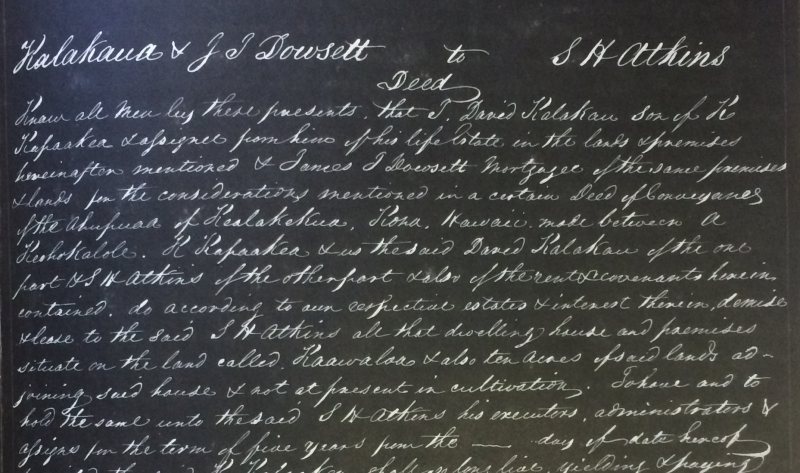 Kalakaua & J I Dowsett to S H Atkins
Deed
Know all men by these presents, that I, David Kalakau son of K
Kapaakea & assignee from him of his life Estate in the lands & premises
hereinafter mentioned & James I Dowsett Mortgagee of the same premises
& lands for the considerations mentioned in a certain Deed of Conveyance
of the Ahupuaa of Kealakekua, Kona, Hawaii. made between A
Keohokalole. K Kapaakea & us the said David Kalakau of the one
part & S H Atkins of the other part & also of the rent & covenants herein
contained, do according to our respective estates & interest therein, demise
& lease to the said S H Atkins all that dwelling house and premises
situate on the land called Kaawaloa & also ten acres of said lands ad-
joining said house & not at present in cultivation. To have and to
hold the same unto the said S H Atkins his executors, administrators &
assigns for the term of five years from the — day of date hereof
the said K Kapaakea shall so long live, yielding & paying